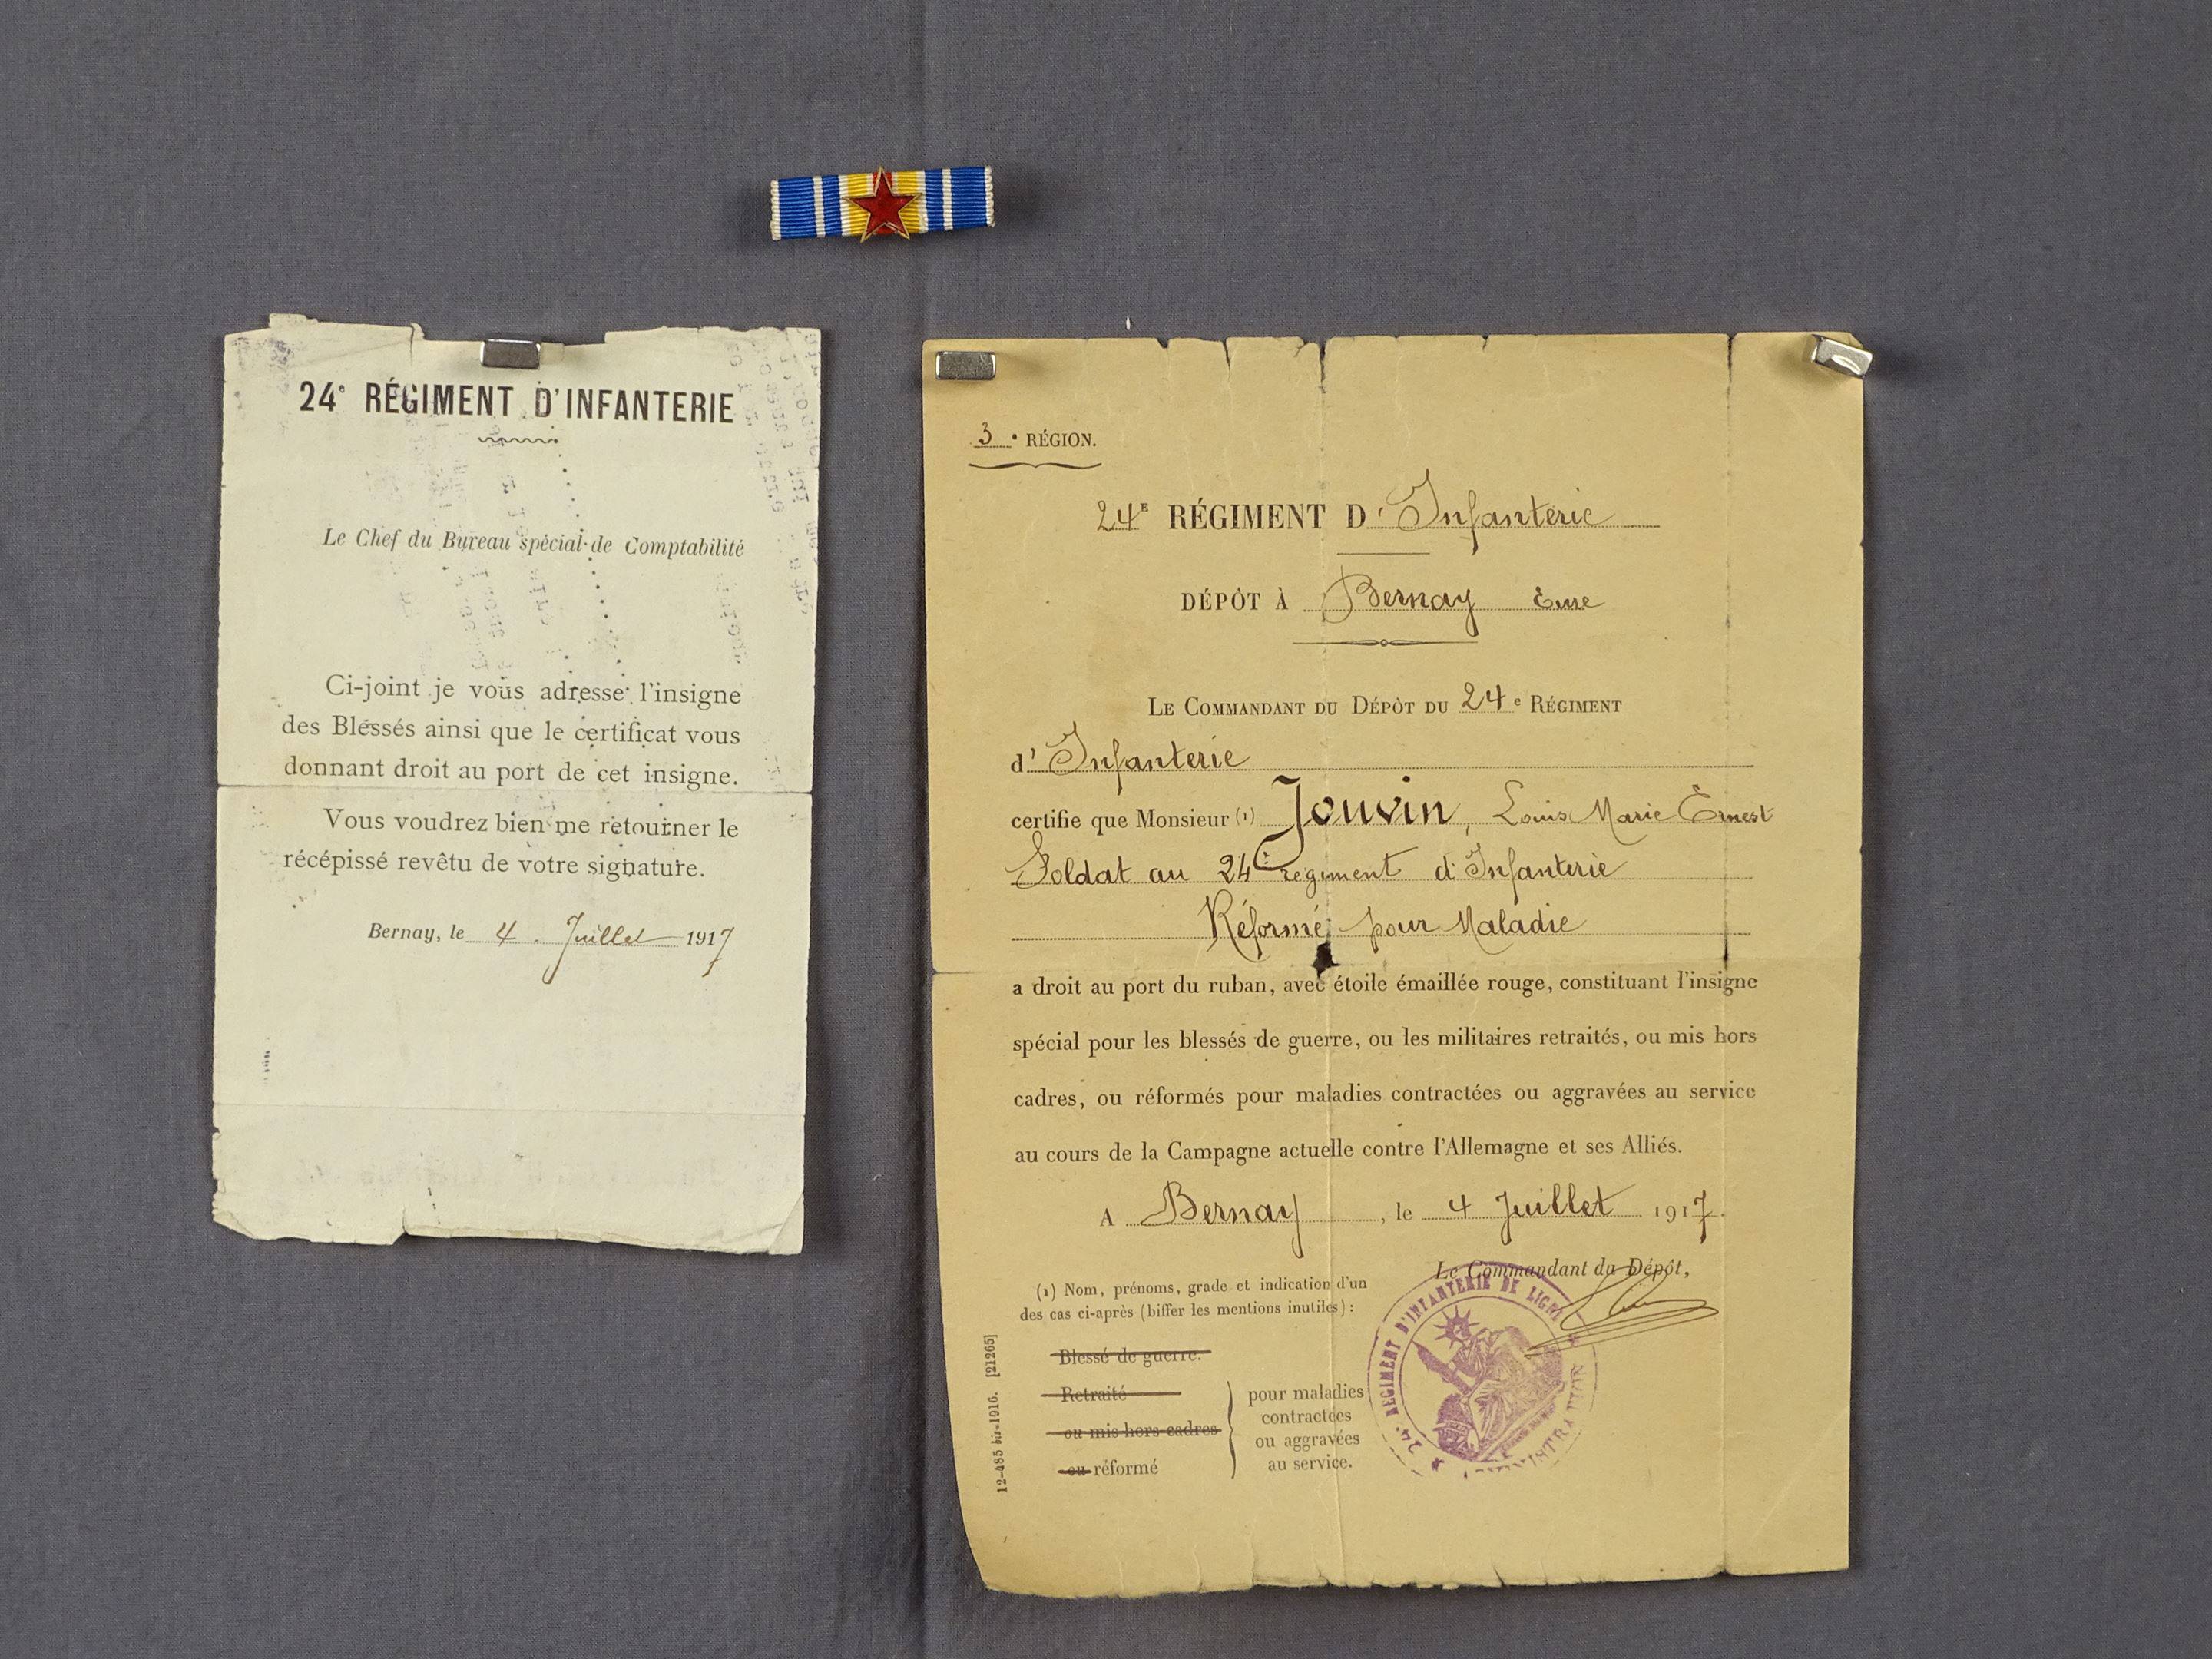 24e RÉGIMENT D'INFANTERIE
Le Chef du Bureau spécial de Comptabilité
Ci-joint je vous adresse l'insigne
des Blessés ainsi que le certificat vous
donnant droit au port de cet insigne.
Vous voudrez bien me retourner le
récépissé revêtu de votre signature.
Bernay, le 4 Juillet 1917
3e RÉGION.
24E RÉGIMENT D'Infanterie
DÉPÔT À Bernay Eure
LE COMMANDANT DU DÉPÔT DU 24e RÉGIMENT
d'Infanterie
certifie que Monsieur (1) Jouvin, Louis Marie Ernest
Soldat au 24e régiment d'Infanterie
Réformé pour Maladie
a droit au port du ruban, avec étoile émaillée rouge, constituant l'insigne
spécial pour les blessés de guerre, ou les militaires retraités, ou mis hors
cadres, ou réformés pour maladies contractées ou aggravées au service
au cours de la Campagne actuelle contre l'Allemagne et ses Alliés.
A Bernay, le 4 Juillet 1917.
Le Commandant du Dépôt,
(1) Nom, prénoms, grade et indication d'un
des cas ci-après (biffer les mentions inutiles) :
Blessé de guerre.
Retraité
ou mis hors cadres
ou réformé
pour maladies
contractées
ou aggravées
au service.
24e REGIMENT D'INFANTERIE DE LIGNE
ADMINISTRATION
12-485 bis-1916. [21265]